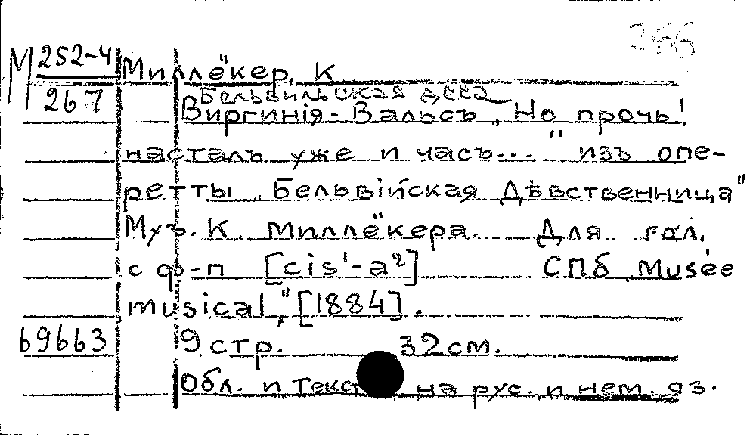 366
М 252-4 Миллёкер, К
267 Бельвильская дева
Виргинія-Вальсъ „Но прочь!
насталъ уже и часъ..." изъ опе-
ретты „Бельвійская Дѣвственница"
Муз. К. Миллёкера. Для гол.
с ф-п [cis¹-a²] СПб „Musée
musical", [1884].
69663 9 стр. 32 см.
Обл. и текст на рус. и нем. яз.